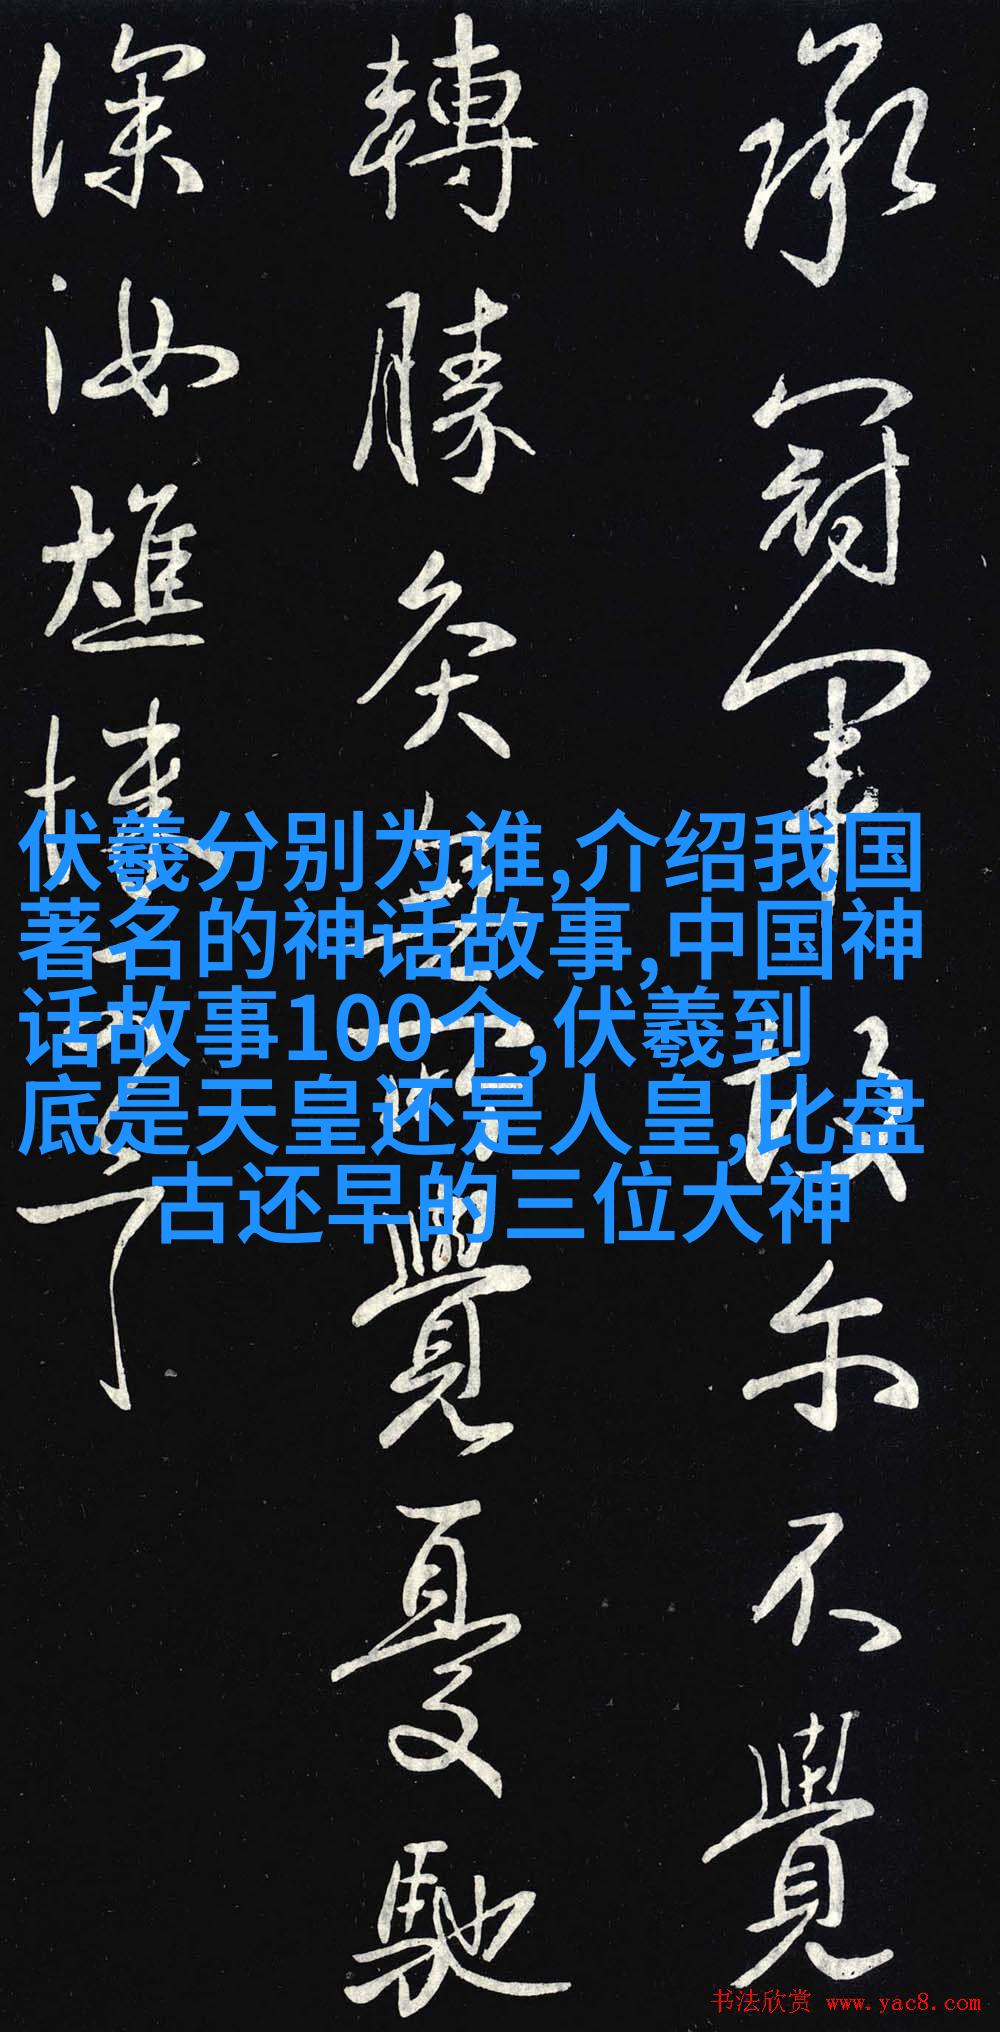 承冠軍故尓不覺
轉勝灸無所覺憂馳
深汝燋悚可言
伏羲分别为谁,介绍我国
著名的神话故事,中国神
话故事100个,伏羲到
底是天皇还是人皇,比盘
古还早的三位大神
书法欣赏 www.yac8.com